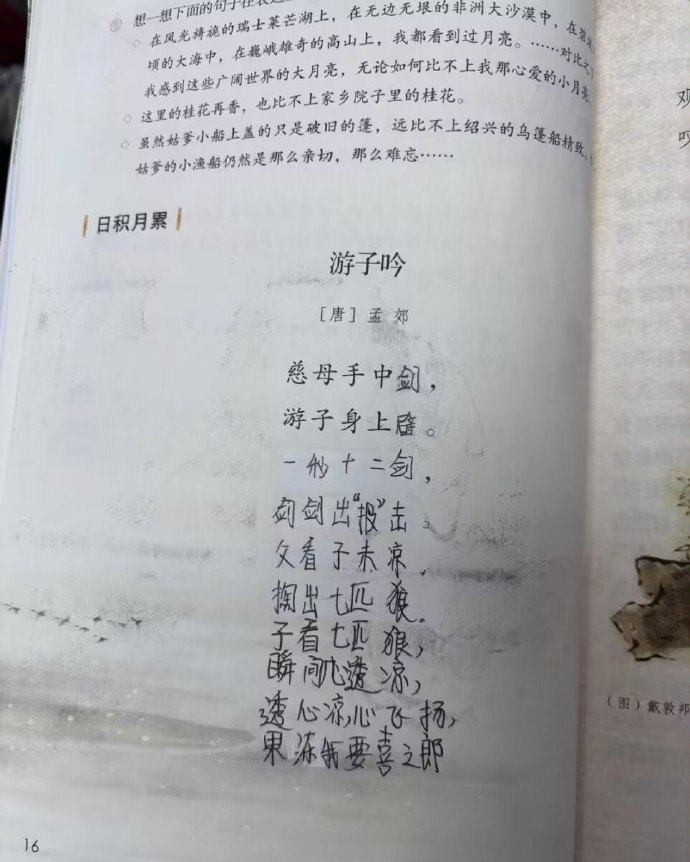 想一想下面的句子在表达
在风光旖旎的瑞士莱芒湖上，在无边无垠的非洲大沙漠中，在碧波
顷的大海中，在巍峨雄奇的高山上，我都看到过月亮。……对比之下
我感到这些广阔世界的大月亮，无论如何比不上我那心爱的小月亮
这里的桂花再香，也比不上家乡院子里的桂花。
虽然姑爹小船上盖的只是破旧的篷，远比不上绍兴的乌篷船精致，
姑爹的小渔船仍然是那么亲切，那么难忘……
日积月累
游子吟
［唐］孟郊
慈母手中剑，
游子身上劈。
一秒十二剑，
剑剑出“投”击。
父看子未凉，
掏出七匹狼。
子看七匹狼，
瞬间心透凉，
透心凉，心飞扬，
果冻我要喜之郎
16
观
（图）戴敦邦